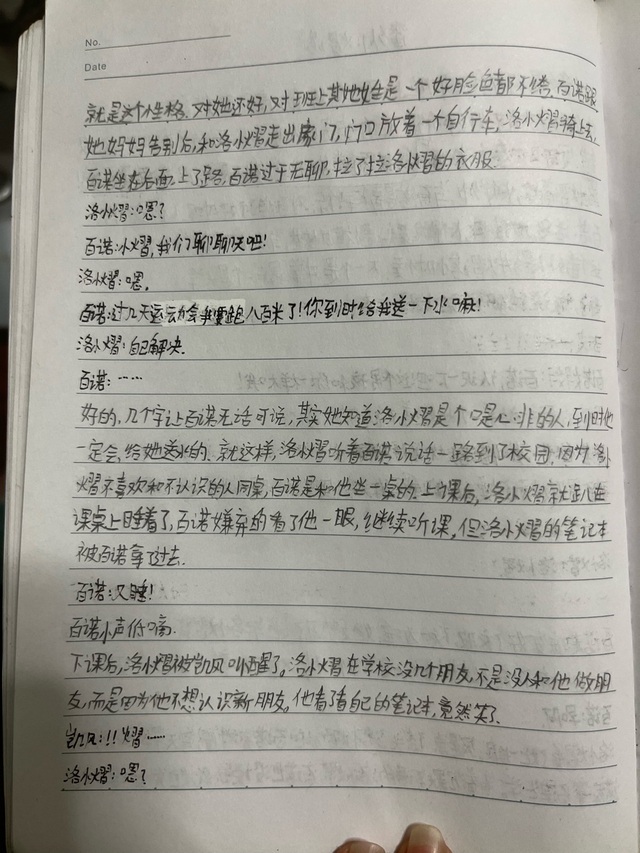 No.
Date
就是这个性格。对她还好,对班上其他女生是一个好脸色都不给,百诺跟
她妈妈告别后,和洛小熠走出家门,门口放着一个自行车,洛小熠骑上去,
百诺坐在后面,上了路,百诺过于无聊,拉了拉洛小熠的衣服.
洛小熠:嗯?
百诺:小熠,我们聊聊天吧!
洛小熠:嗯。
百诺:过几天运动会我要跑八百米了!你到时给我送一下水嘛!
洛小熠:自己解决.
百诺:……
好的,几个字让百诺无话可说,其实她知道洛小熠是个口是心非的人,到时他
一定会给她送水的、就这样,洛小熠听着百诺说话一路到了校园,因为洛小
熠不喜欢和不认识的人同桌,百诺是和他坐一桌的、上课后,洛小熠就趴在
课桌上睡着了,百诺嫌弃的看了他一眼,继续听课,但洛小熠的笔记本
被百诺拿了过去.
百诺:又睡!
百诺小声低嘀.
下课后,洛小熠被凯风叫醒了。洛小熠在学校没几个朋友,不是没人和他做朋
友,而是因为他不想认识新朋友。他看了看自己的笔记本,竟然笑了.
凯风:!!熠……
洛小熠:嗯?